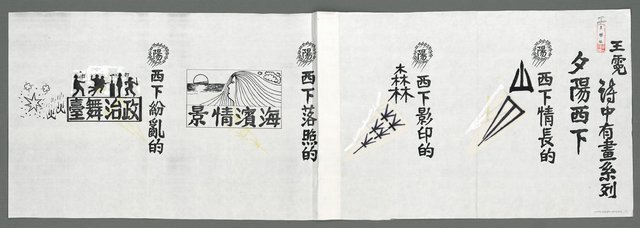 王霓
詩中有畫系列
夕陽西下
陽
西下情長的
陽
西下影印的
森林
陽
西下落照的
海濱情景
陽
西下紛亂的
政治舞臺
火火